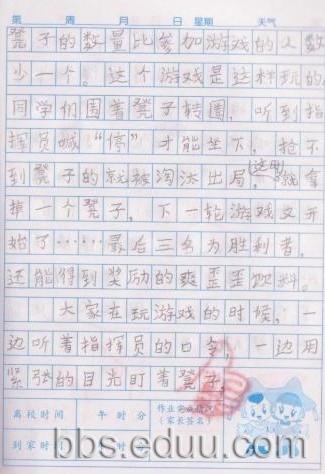 第 周 月 日 星期 天气
凳子的数量比参加游戏的人数
少一个。这个游戏是这样玩的
同学们围着凳子转圈，听到指
挥员喊“停”才能坐下，抢不
到凳子的就被淘汰出局，(这时)就拿
掉一个凳子，下一轮游戏又开
始了……最后三名为胜利者，
还能得到奖励的爽歪歪饮料。
大家在玩游戏的时候，一
边听着指挥员的口令，一边用
紧张的目光盯着凳子，
离校时间 午 时 分 作业完成情况
(家长签名)
到家时间 时 分
bbs.eduu.com